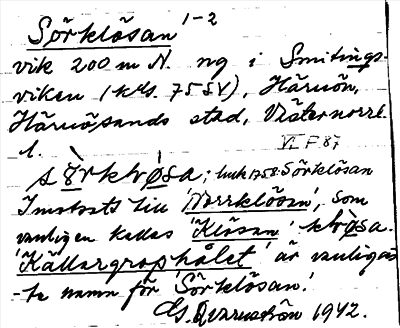 Sörklösan 1-2
vik 200 m N. ng i Smitings-
viken (kds. 75 SV), Härnön,
Härnösands stad, Västernorrl.
l.
VI F 87
sörkløsa; Sörklösan
Imotsats till 'Norrklösan', som
vanligen kallas 'Klösan' kløsa.
'Källargrophålet' är vanligas-
te namn för 'Sörklösan'.
G. Qvarnström 1942.